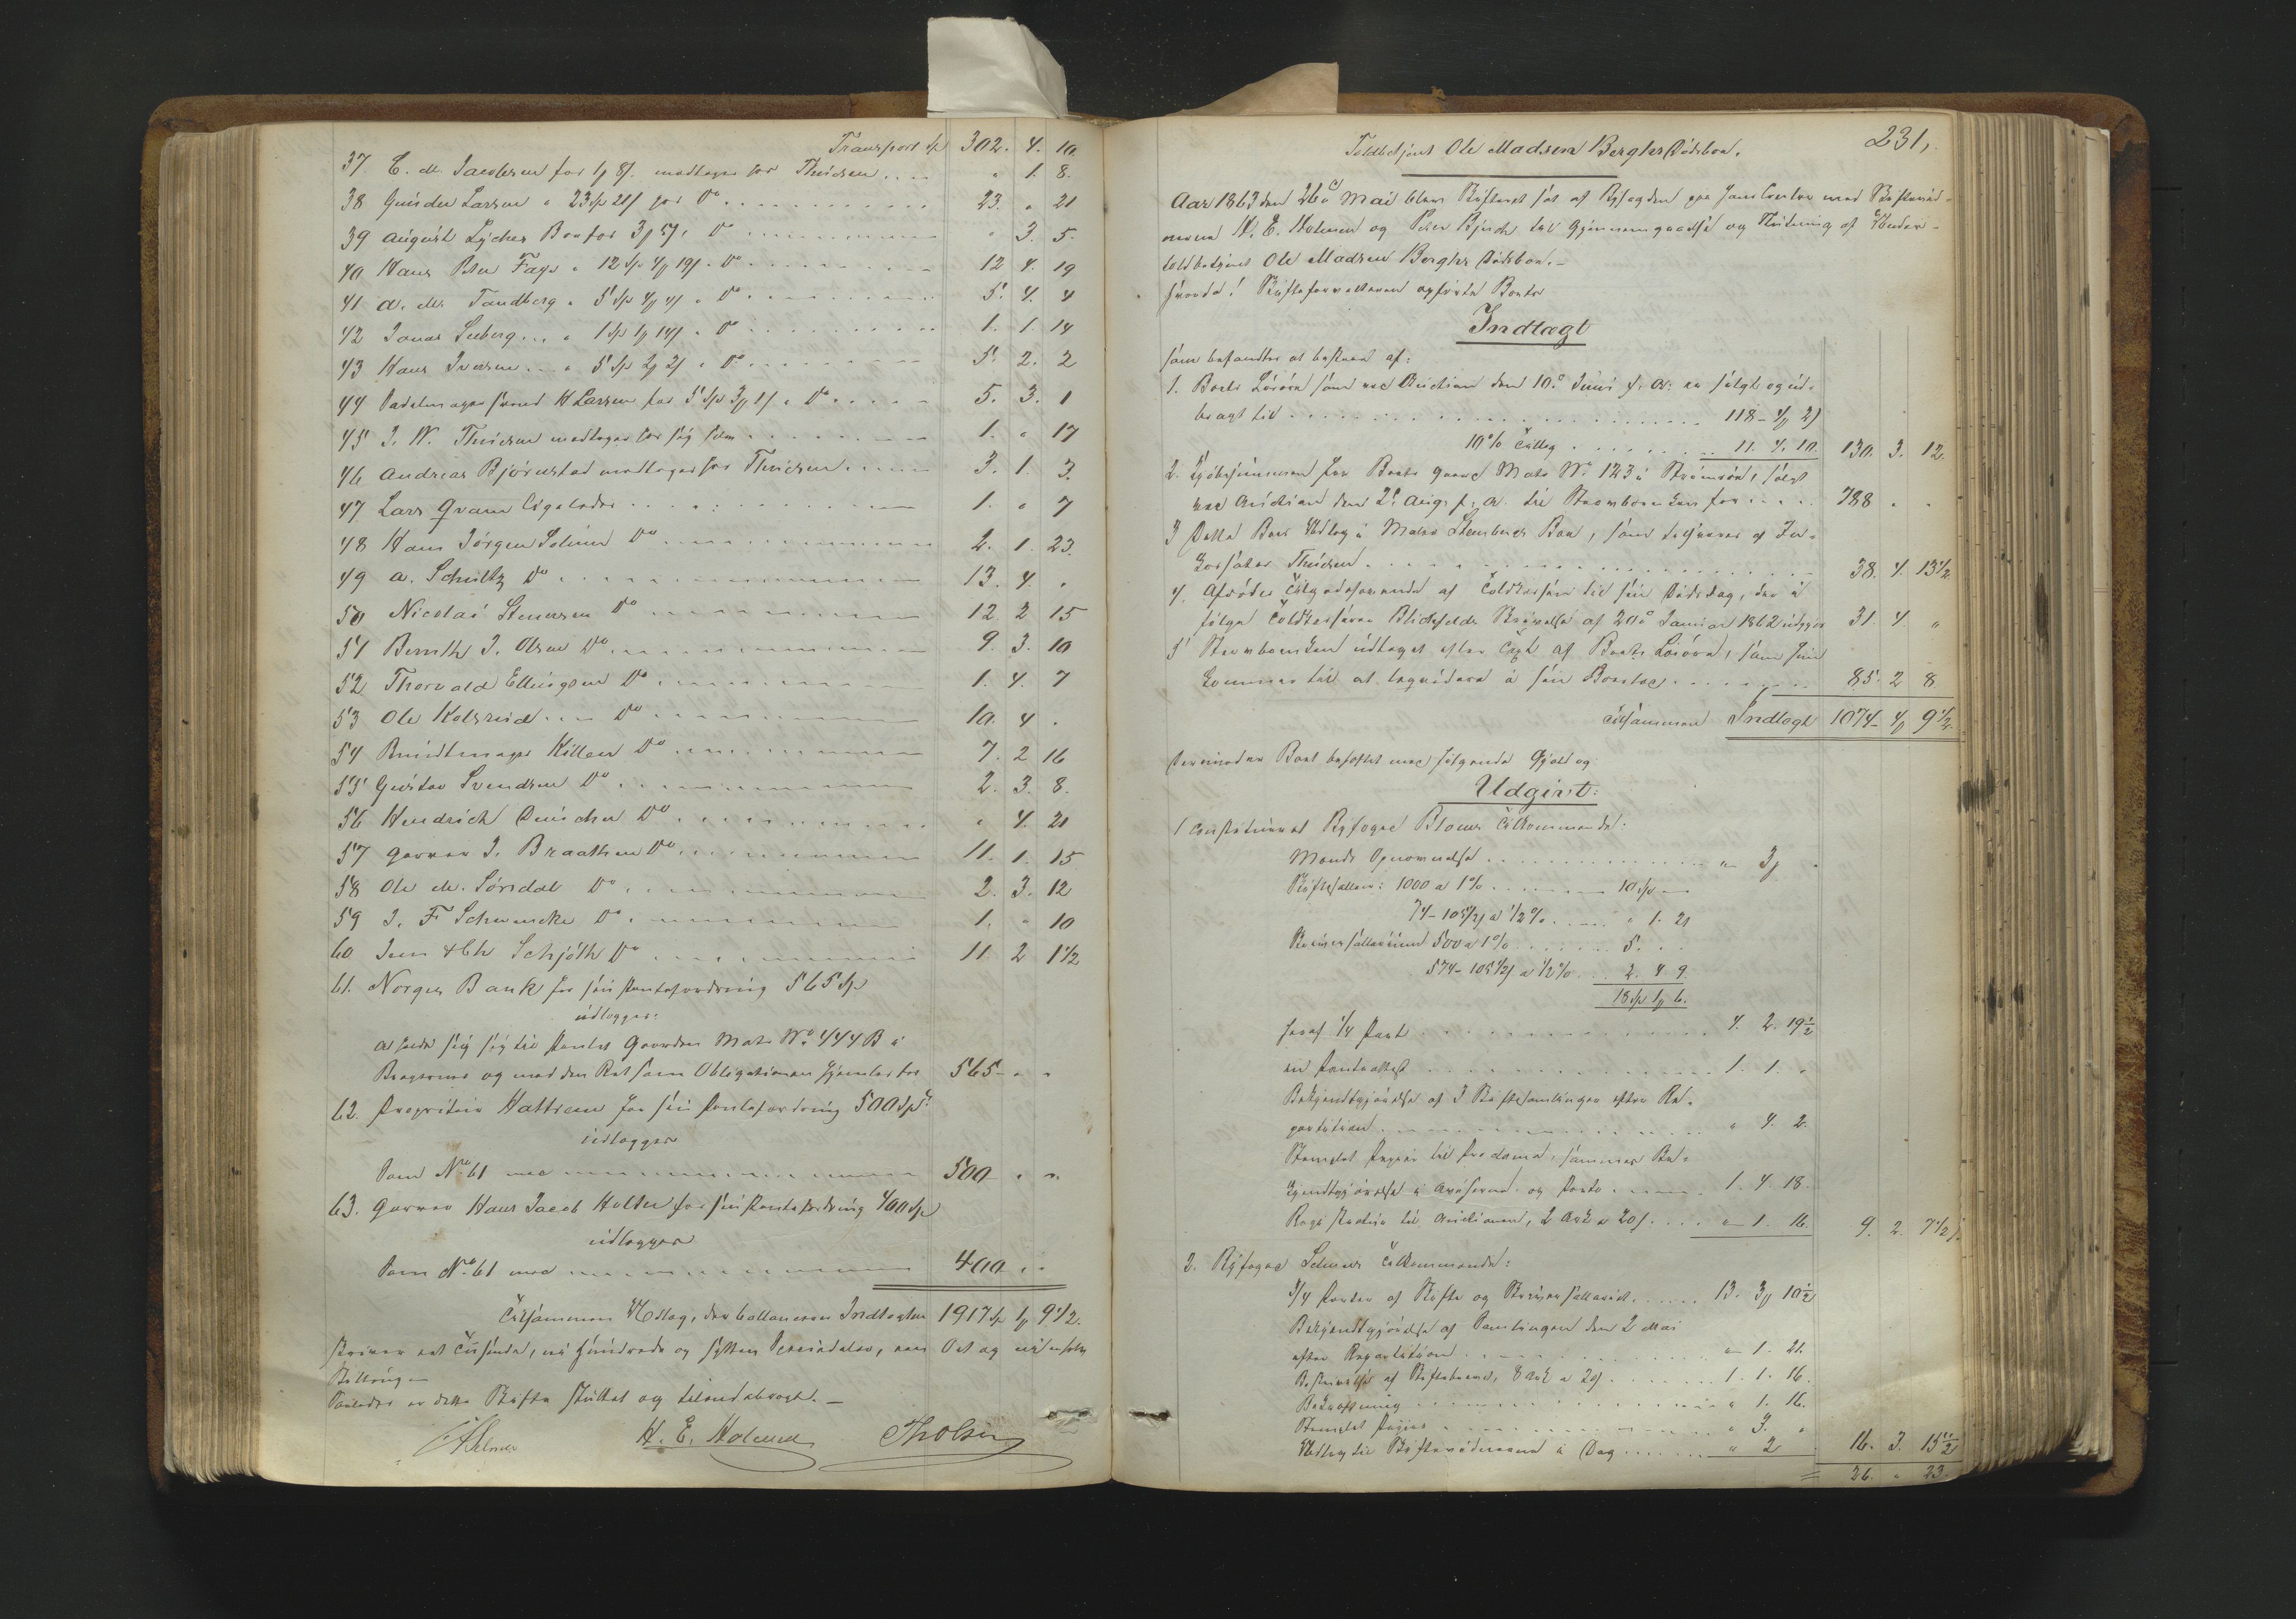 Transport Sp 302. 4. 10
37 E. M. Jacobsen for 1 8 modtager for Thudsen 1. 8.
38 Gunder Larsen 23 Sp 21 for Do 23. " 21
39 August Lyches Bo for 3 5 Do " 3. 5.
40 Hans Peter Fays 12 Sp 4 19 Do 12 4. 19
41 A. M. Tandberg 5 Sp 4 4 Do 5. 4. 4
42 Jonas Seeberg 1 Sp 1 14 Do 1. 1. 14
43 Hans Iversen 5 Sp 2 2 Do 5. 2. 2
44 Sadelmagersvend H Larsen for 5 Sp 3 1 Do 5. 3. 1
45 J. W. Thudsen modtager for sig selv 1. " 17
46 Andreas Bjørnstad modtager for Thudsen 3. 1. 3.
47 Lars Qvam ligeledes 1. " 7
48 Hans Jørgen Do 2. 1. 23.
49 A. Schultz Do 13. 4. "
50 Nicolai Stenersen Do 12 2 15
51 Bernth J. Olsen Do 9. 3. 10
52 Thorvald Ellingsen Do 1. 4. 7
53 Ole Kolsrud Do 10. 4 .
54 Bundtmager Killen Do 7. 2 16
55 Gustav Svendsen Do 2. 3. 8.
56 Hendrich Do " 4. 21
57 Garver J. Braathen Do 11. 1. 15
58 Ole M. Sørsdal Do 2. 3. 12
59 J. F Schwencke Do 1. " 10
60 Jens & Ch Schjøth Do 11. 2 1 1/2
61. Norges Bank for sin Pantefordring 565 Sp
udlægges:
at holde sig til Pantet Gaarden Matr No 444 B i
Bragernes og med den Ret som Obligationen hjemler for 565 " "
62. Proprietair for sin Pantefordring 500 Sp
udlægges
Som No 61 med 500 " "
63. Garver Hans Jacob Holter for sin Pantefordring 400 Sp
udlægges
Som No 61 med 400 " "
Tilsammen Udlæg, der ballancerer Indtægten 1917 Sp 1 9 1/2.
skriver et Tusinde, ni Hundrede og sytten Speciedaler, een Ort og ni en halv
Skilling
Saaledes er dette Skifte sluttet og tilendebragt.
H. E. Holmen
231,
Toldbetjent Ole Madsen Berghs Dødsbo.
Aar 1863 den 26 Mai blev Skifteret sat af Byfogden paa hans Contor med Skiftevid-
nerne H. E. Holmen og Peter Bjerch til Gjennemgaaelse og Slutning af Under-
toldbetjent Ole Madsen Berghs Dødsbo.
hvorda: Skifteforvalteren opførte Boets
Indtægt
som befandtes at bestaae af:
1. Boets Løsøre som ved Auction den 10 Juni f. A. er solgt og ud-
bragt til 118 - 4 2
10% Tillæg 11. 4. 10 130. 3. 12.
2. Kjøbesummen for Boets Gaard Matr No 123 i Strømsø, solgt
ved Auction den 2 Aug. f. A. til for 788 " "
3 Dette Boes Udlæg i Mads Stensbergs Bo, som af In-
kassator Thudsen 38. 4. 13 1/2
4. Afdødes Tilgodehavende af Toldkassen til sin Dødsdag, der i
følge Toldkasserer Blichfeldts Skrivelse af 20 Januar 1862 udgjør 31. 4. "
5 udtaget efter Taxt af Boets Løsøre, som hun
kommer til at liqvidere i sin Boeslod 85. 2 8
tilsammen Indtægt 1074 - 4 9 1/2
Derimod er Boet behæftet med følgende Gjeld og
Udgivt:
1 Constitueret Byfoged Bloms Tilkommende:
" 3
Skiftesallair: 1000 a 1% 10 Sp
74 - 105 1/2 a 1/2% " 1. 21
Skriversallarium 500 a 1% 5. . .
574 - 105 1/2 a 1/2% 2. 4 9.
18 Sp 1 6.
heraf 1/4 Part 4. 2. 19 1/2
en Panteattest 1. 1. "
Bekjendtgjørelse af 3 Skiftesamlinger efter Re-
partition " 4. 2.
Stemplet Papir til Proclama, sammes Be-
kjendtgjørelse i Aviserne og Porto 1. 4. 18.
til Auctionen, 2 Ark a 20 " 1. 16. 9. 2. 7 1/2
2. Byfoged Selmers Tilkommende:
3/4 Parter af Skifte og Skriversallariet 13. 3 10 1/2
Bekjendtgjørelse af Samlingen den 2 Mai
efter Repartition " 1. 21.
Beskrivelse af Skiftebrevet, 8 Ark a 20 1. 1. 16.
Bekræftning " 1. 16.
Stemplet Papir " 3. "
Udlæg til Skiftevidnerne i Dag " 2 16. 3. 15 1/2
= 26. " 23.